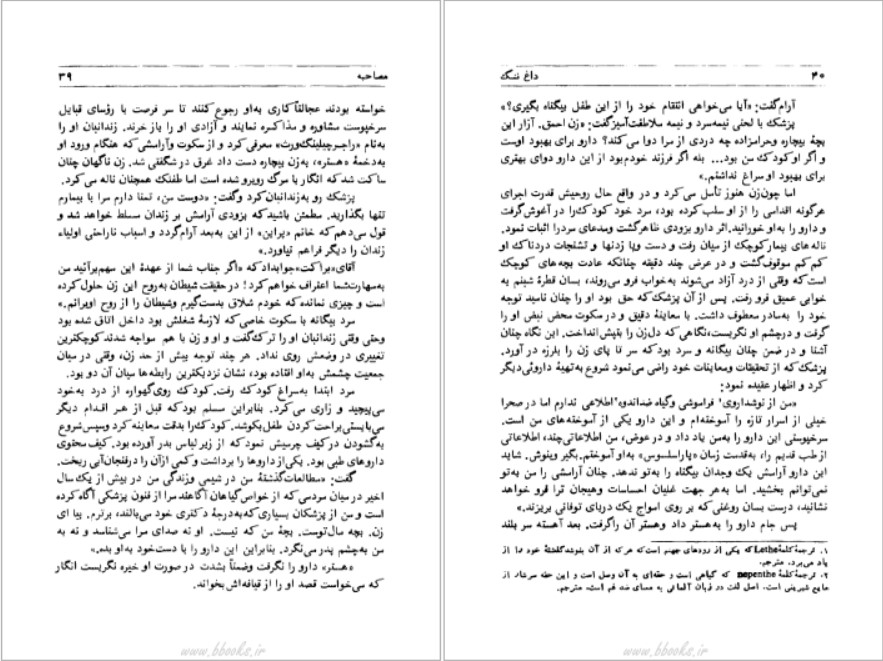 مصاحبه ۳۹
خواسته بودند عجالتاً کاری به‌او رجوع کنند تا سر فرصت با رؤسای قبایل
سرخپوست مشاوره و مذاکره نمایند و آزادی او را باز خرند. زندانبان او را
به‌نام «راجرچیلینگ‌ورث» معرفی کرد و از سکوت و آرامشی که هنگام ورود او
به‌دخمهٔ «هستر» به‌زن بیچاره دست داد غرق در شگفتی شد. زن ناگهان چنان
ساکت شد که انگار با مرگ روبرو شده است اما طفلک همچنان ناله می‌کرد.
پزشک رو به‌زندانبان کرد و گفت: «دوست من، تمنا دارم مرا با بیمارم
تنها بگذارید. مطمئن باشید که بزودی آرامش بر زندان مسلط خواهد شد و
قول می‌دهم که خانم «پراین» از این به‌بعد آرام گردد و اسباب ناراحتی اولیاء
زندان را دیگر فراهم نیاورد.»
آقای «براکت» جواب‌داد که «اگر جناب شما از عهدهٔ این مهم برآئید من
به‌مهارت‌شما اعتراف خواهم کرد! در حقیقت شیطان به‌روح این زن حلول کرده
است و چیزی نمانده که خودم شلاق به‌دست‌گیرم و شیطان را از روح او برانم.»
مرد بیگانه با سکوت خاصی که لازمهٔ شغلش بود داخل اتاق شده بود
وحتی وقتی زندانبان او را ترک گفت و او و زن با هم مواجه شدند کوچکترین
تغییری در وضعش روی نداد. هر چند توجه بیش از حد زن، وقتی در میان
جمعیت چشمش به‌او افتاده بود، نشان نزدیکترین رابطه‌ها میان آن دو بود.
مرد ابتدا به‌سراغ کودک رفت. کودک روی گهواره از درد به‌خود
می‌پیچید و زاری می‌کرد. بنابراین مسلم بود که قبل از هر اقدام دیگر
می‌بایستی براحت کردن طفل بکوشد. کودک را بدقت معاینه کرد وسپس شروع
به‌گشودن در کیف چرمیش نمود که از زیر لباس بدر آورده بود. کیف محتوی
داروهای طبی بود. یکی از داروها را برداشت و کمی ازآن را در فنجان‌آبی ریخت.
گفت: «مطالعات گذشتهٔ من در شیمی وزندگی من در بیش از یک سال
اخیر در میان مردمی که از خواص گیاهان آگاهند مرا از فنون پزشکی آگاه کرده
است و من از پزشکان بسیاری که به‌درجهٔ دکتری خود می‌بالند، برترم. بیا ای
زن. بچه مال توست. بچهٔ من که نیست. او نه صدای مرا می‌شناسد و نه به
من به‌چشم پدر می‌نگرد. بنابراین این دارو را با دست‌خود به‌او بده.»
«هستر» دارو را نگرفت وضمناً بشدت در صورت او خیره نگریست انگار
که می‌خواست قصد او را از قیافه‌اش بخواند.
www.bbooks.ir
۴۰ داغ ننگ
آرام‌گفت: «آیا می‌خواهی انتقام خود را از این طفل بیگناه بگیری؟»
پزشک با لحنی نیمه‌سرد و نیمه ملاطفت‌آمیز گفت: «زن احمق. آزار این
بچهٔ بیچاره وحرامزاده چه دردی از مرا دوا می‌کند؟ دارو برای بهبود اوست
و اگر او کودک من بود... بله اگر فرزند خودم بود از این دارو دوای بهتری
برای بهبود او سراغ نداشتم.»
اما چون‌زن هنوز تأمل می‌کرد و در واقع حال روحیش قدرت اجرای
هرگونه اقدامی را از او سلب کرده بود، مرد خود کودک را در آغوش گرفت
و دارو را به‌او خورانید. اثر دارو بزودی ظاهر گشت ومدعای مرد را اثبات نمود.
ناله های بیمار کوچک از میان رفت و دست وپا زدنها و تشنجات دردناک او
کم کم موقوف گشت و در عرض چند دقیقه چنانکه عادت بچه های کوچک
است که وقتی از درد آزاد می‌شوند به‌خواب فرو می‌روند، بسان قطرهٔ شبنم به
خوابی عمیق فرو رفت. پس از آن پزشک که حق بود او را چنان نامید توجه
خود را به‌مادر معطوف داشت. با معاینهٔ دقیق و در سکوت محض نبض او را
گرفت و درچشم او نگریست، نگاهی که دل‌زن را بتپش‌انداخت. این نگاه چنان
آشنا و در ضمن چنان بیگانه و سرد بود که سر تا پای زن را بلرزه در آورد.
پزشک که از تحقیقات ومعاینات خود راضی می‌نمود شروع به‌تهیهٔ داروئی دیگر
کرد و اظهار عقیده نمود:
«من از نوشداروی۱ فراموشی وگیاه ضداندوه۲ اطلاعی ندارم اما در صحرا
خیلی از اسرار تازه را آموخته‌ام و این دارو یکی از آموخته های من است.
سرخپوستی این دارو را به‌من یاد داد و در عوض، من اطلاعاتی‌چند، اطلاعاتی
از طب قدیم را، به‌قدمت زمان «پاراسلسوس» به‌او آموختم. بگیر وبنوش. شاید
این دارو آرامش یک وجدان بیگناه را به‌تو ندهد. چنان آرامشی را من به‌تو
نمی‌توانم بخشید. اما به‌هر جهت غلیان احساسات وهیجان ترا فرو خواهد
نشانید، درست بسان روغنی که بر روی امواج یک دریای توفانی بریزند.»
پس جام دارو را به‌هستر داد وهستر آن را گرفت. بعد آهسته سر بلند
۱. ترجمهٔ کلمهٔ Lethe که یکی از رودهای جهنم است که هر که از آن بنوشد گذشتهٔ خود را از
یاد می‌برد. مترجم.
۲. ترجمهٔ کلمهٔ nepenthe که گیاهی است و حقه‌ای به آن وصل است و این حقه سرشار از
مایع شیرینی است. اصل لغت در زبان آلمانی به معنای ضد غم است. مترجم.
www.bbooks.ir